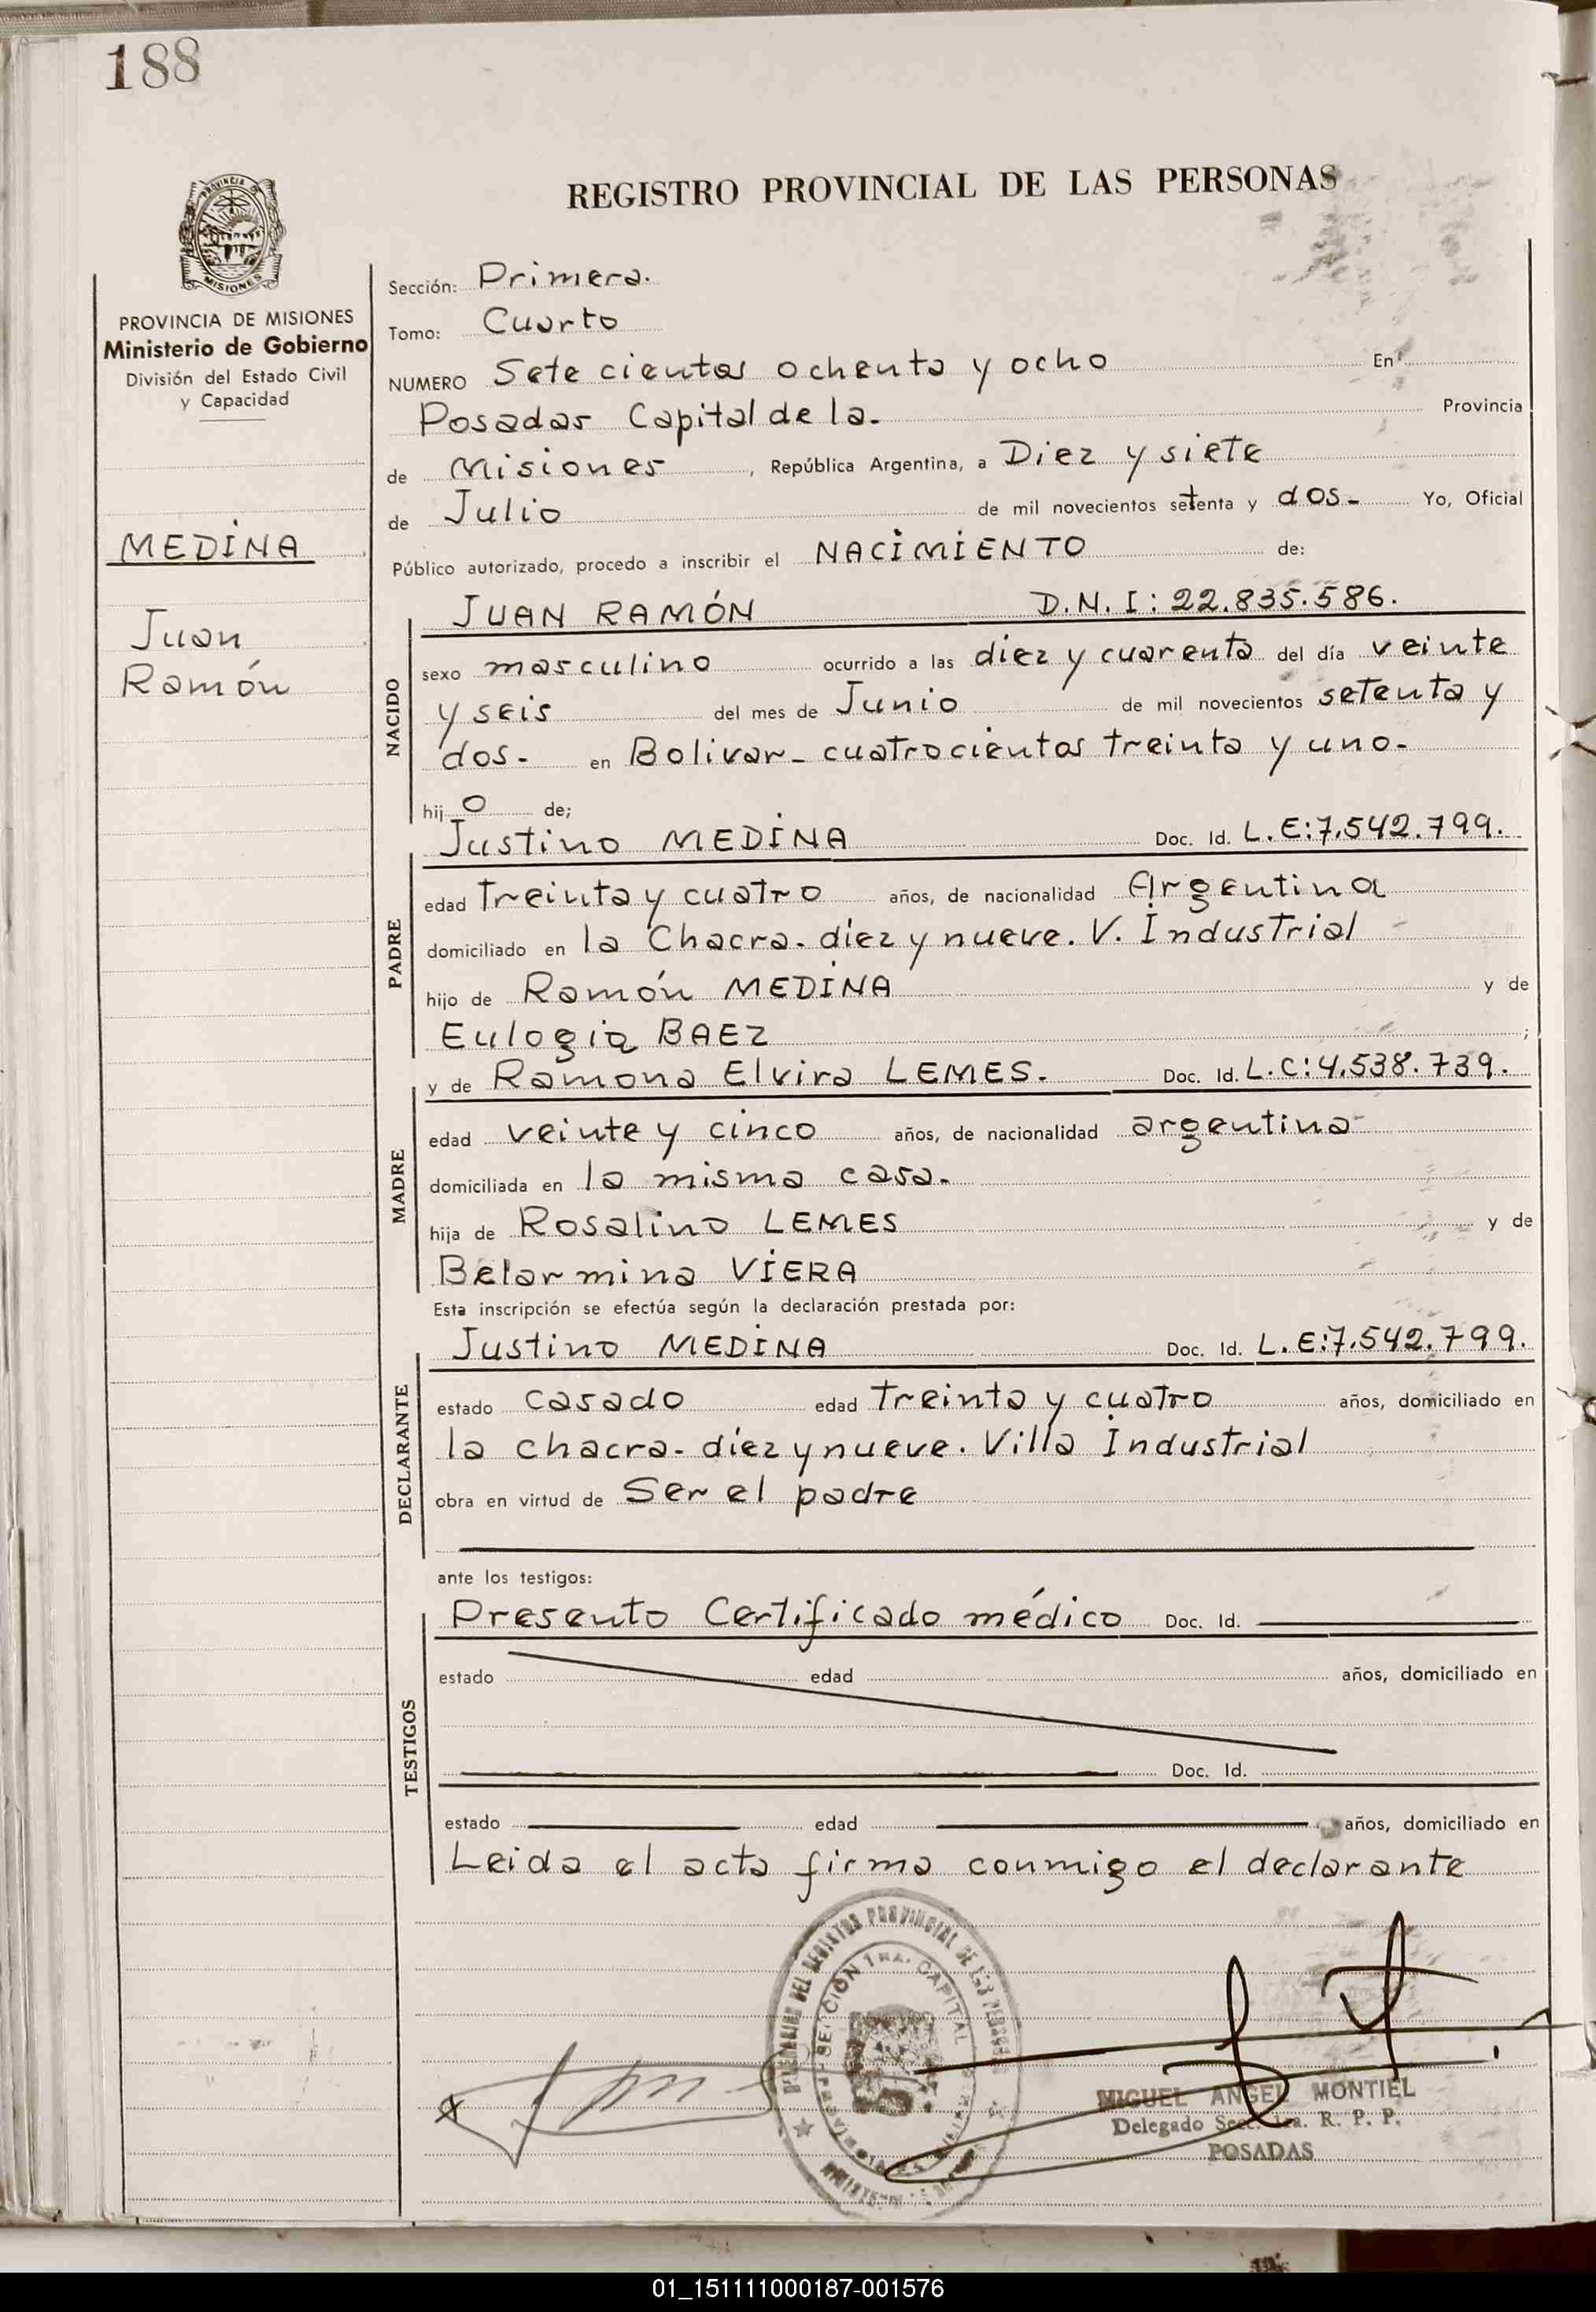 188
PROVINCIA DE
MISIONES
PROVINCIA DE MISIONES
Ministerio de Gobierno
División del Estado Civil
y Capacidad
MEDINA
Juan
Ramón
REGISTRO PROVINCIAL DE LAS PERSONAS
Sección: Primera.
Tomo: Cuarto
NUMERO Sete cientos ochenta y ocho En
Posadas Capital de la. Provincia
de Misiones, República Argentina, a Diez y siete
de Julio de mil novecientos setenta y dos- Yo, Oficial
Público autorizado, procedo a inscribir el NACIMIENTO de:
NACIDO
JUAN RAMÓN D.N.I: 22.835.586.
sexo masculino ocurrido a las diez y cuarenta del día veinte
y seis del mes de Junio de mil novecientos setenta y
dos- en Bolivar- cuatrocientos treinta y uno-
hij o de;
PADRE
Justino MEDINA Doc. Id. L.E:7.542.799.
edad treinta y cuatro años, de nacionalidad Argentina
domiciliado en la Chacra- diez y nueve. V. Industrial
hijo de Ramón MEDINA y de
Eulogia BAEZ ;
MADRE
y de Ramona Elvira LEMES. Doc. Id. L.C:4.538.739.
edad veinte y cinco años, de nacionalidad argentina
domiciliada en la misma casa.
hija de Rosalino LEMES y de
Belarmina VIERA
Esta inscripción se efectúa según la declaración prestada por:
DECLARANTE
Justino MEDINA Doc. Id. L.E:7.542.799.
estado casado edad treinta y cuatro años, domiciliado en
la chacra- diez y nueve. Villa Industrial
obra en virtud de Ser el padre
ante los testigos:
TESTIGOS
Presento Certificado médico Doc. Id.
estado edad años, domiciliado en
Doc. Id.
estado edad años, domiciliado en
Leida el acta firma conmigo el declarante
PROVINCIAL DE LAS
SECCION 1RA. CAPITAL
MIGUEL ANGEL MONTIEL
Delegado Secc. 1ra. R. P. P.
POSADAS
01_151111000187-001576